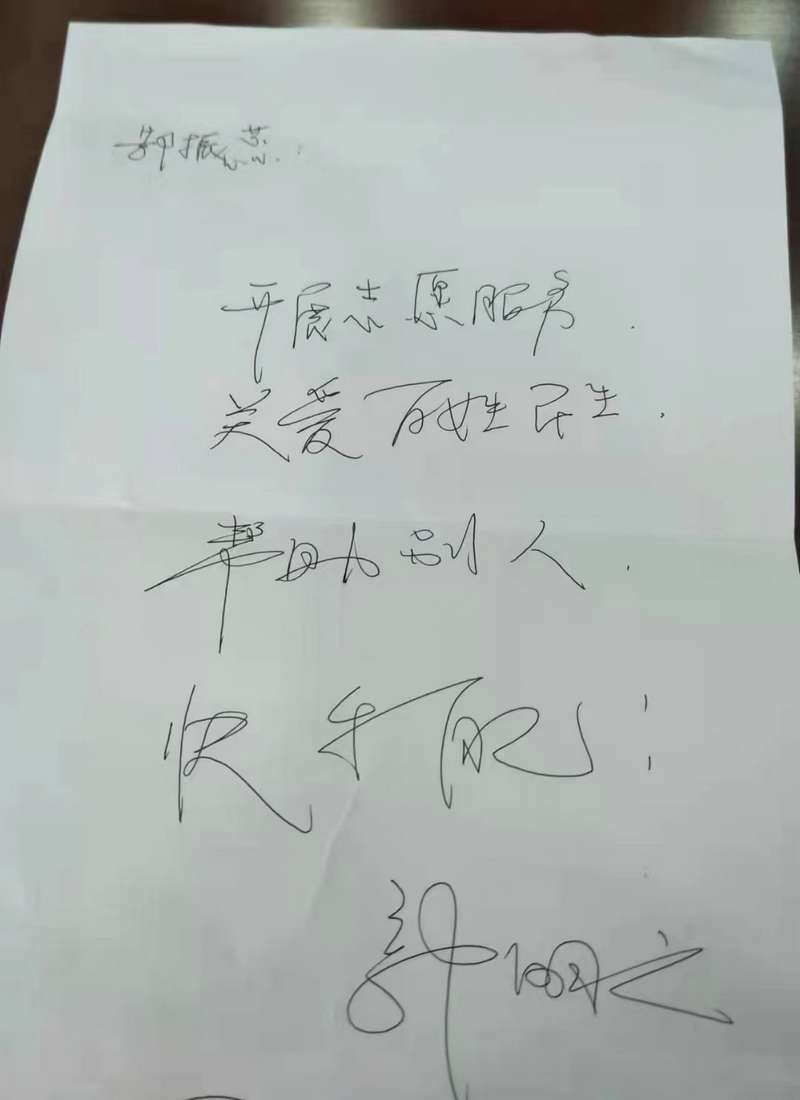 郭振
开展志愿服务.
关爱百姓民生.
帮助别人.
快乐自己!
郭明义